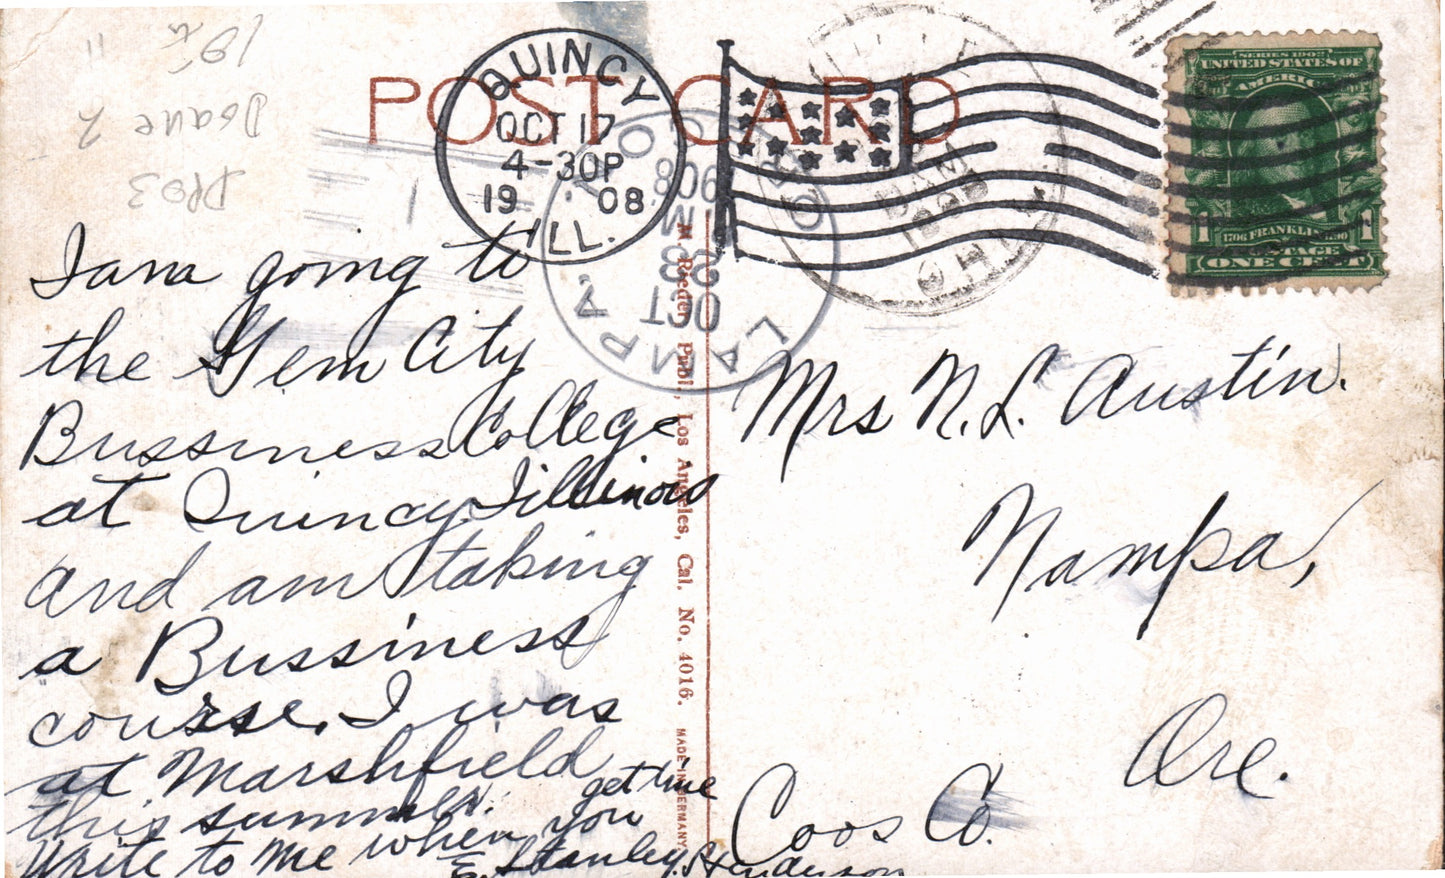 POST CARD
QUINCY
OCT 17
4-30P
19 08
ILL.
LAMPA
OCT
23
M
908
ORE
SERIES 1902
UNITED STATES OF
AMERICA
1 1706 FRANKLIN 1790 1
POSTAGE
ONE CENT
I am going to
the Gem City
Bussiness College
at Quincy Illinois
and am taking
a Bussiness
course. I was
at Marshfield
this summer.
Write to me when you get time
E. Stanley Henderson
M. Rieder, Publ., Los Angeles, Cal. No. 4016. MADE IN GERMANY.
Mrs N. L. Austin.
Nampa,
Ore.
Coos Co.